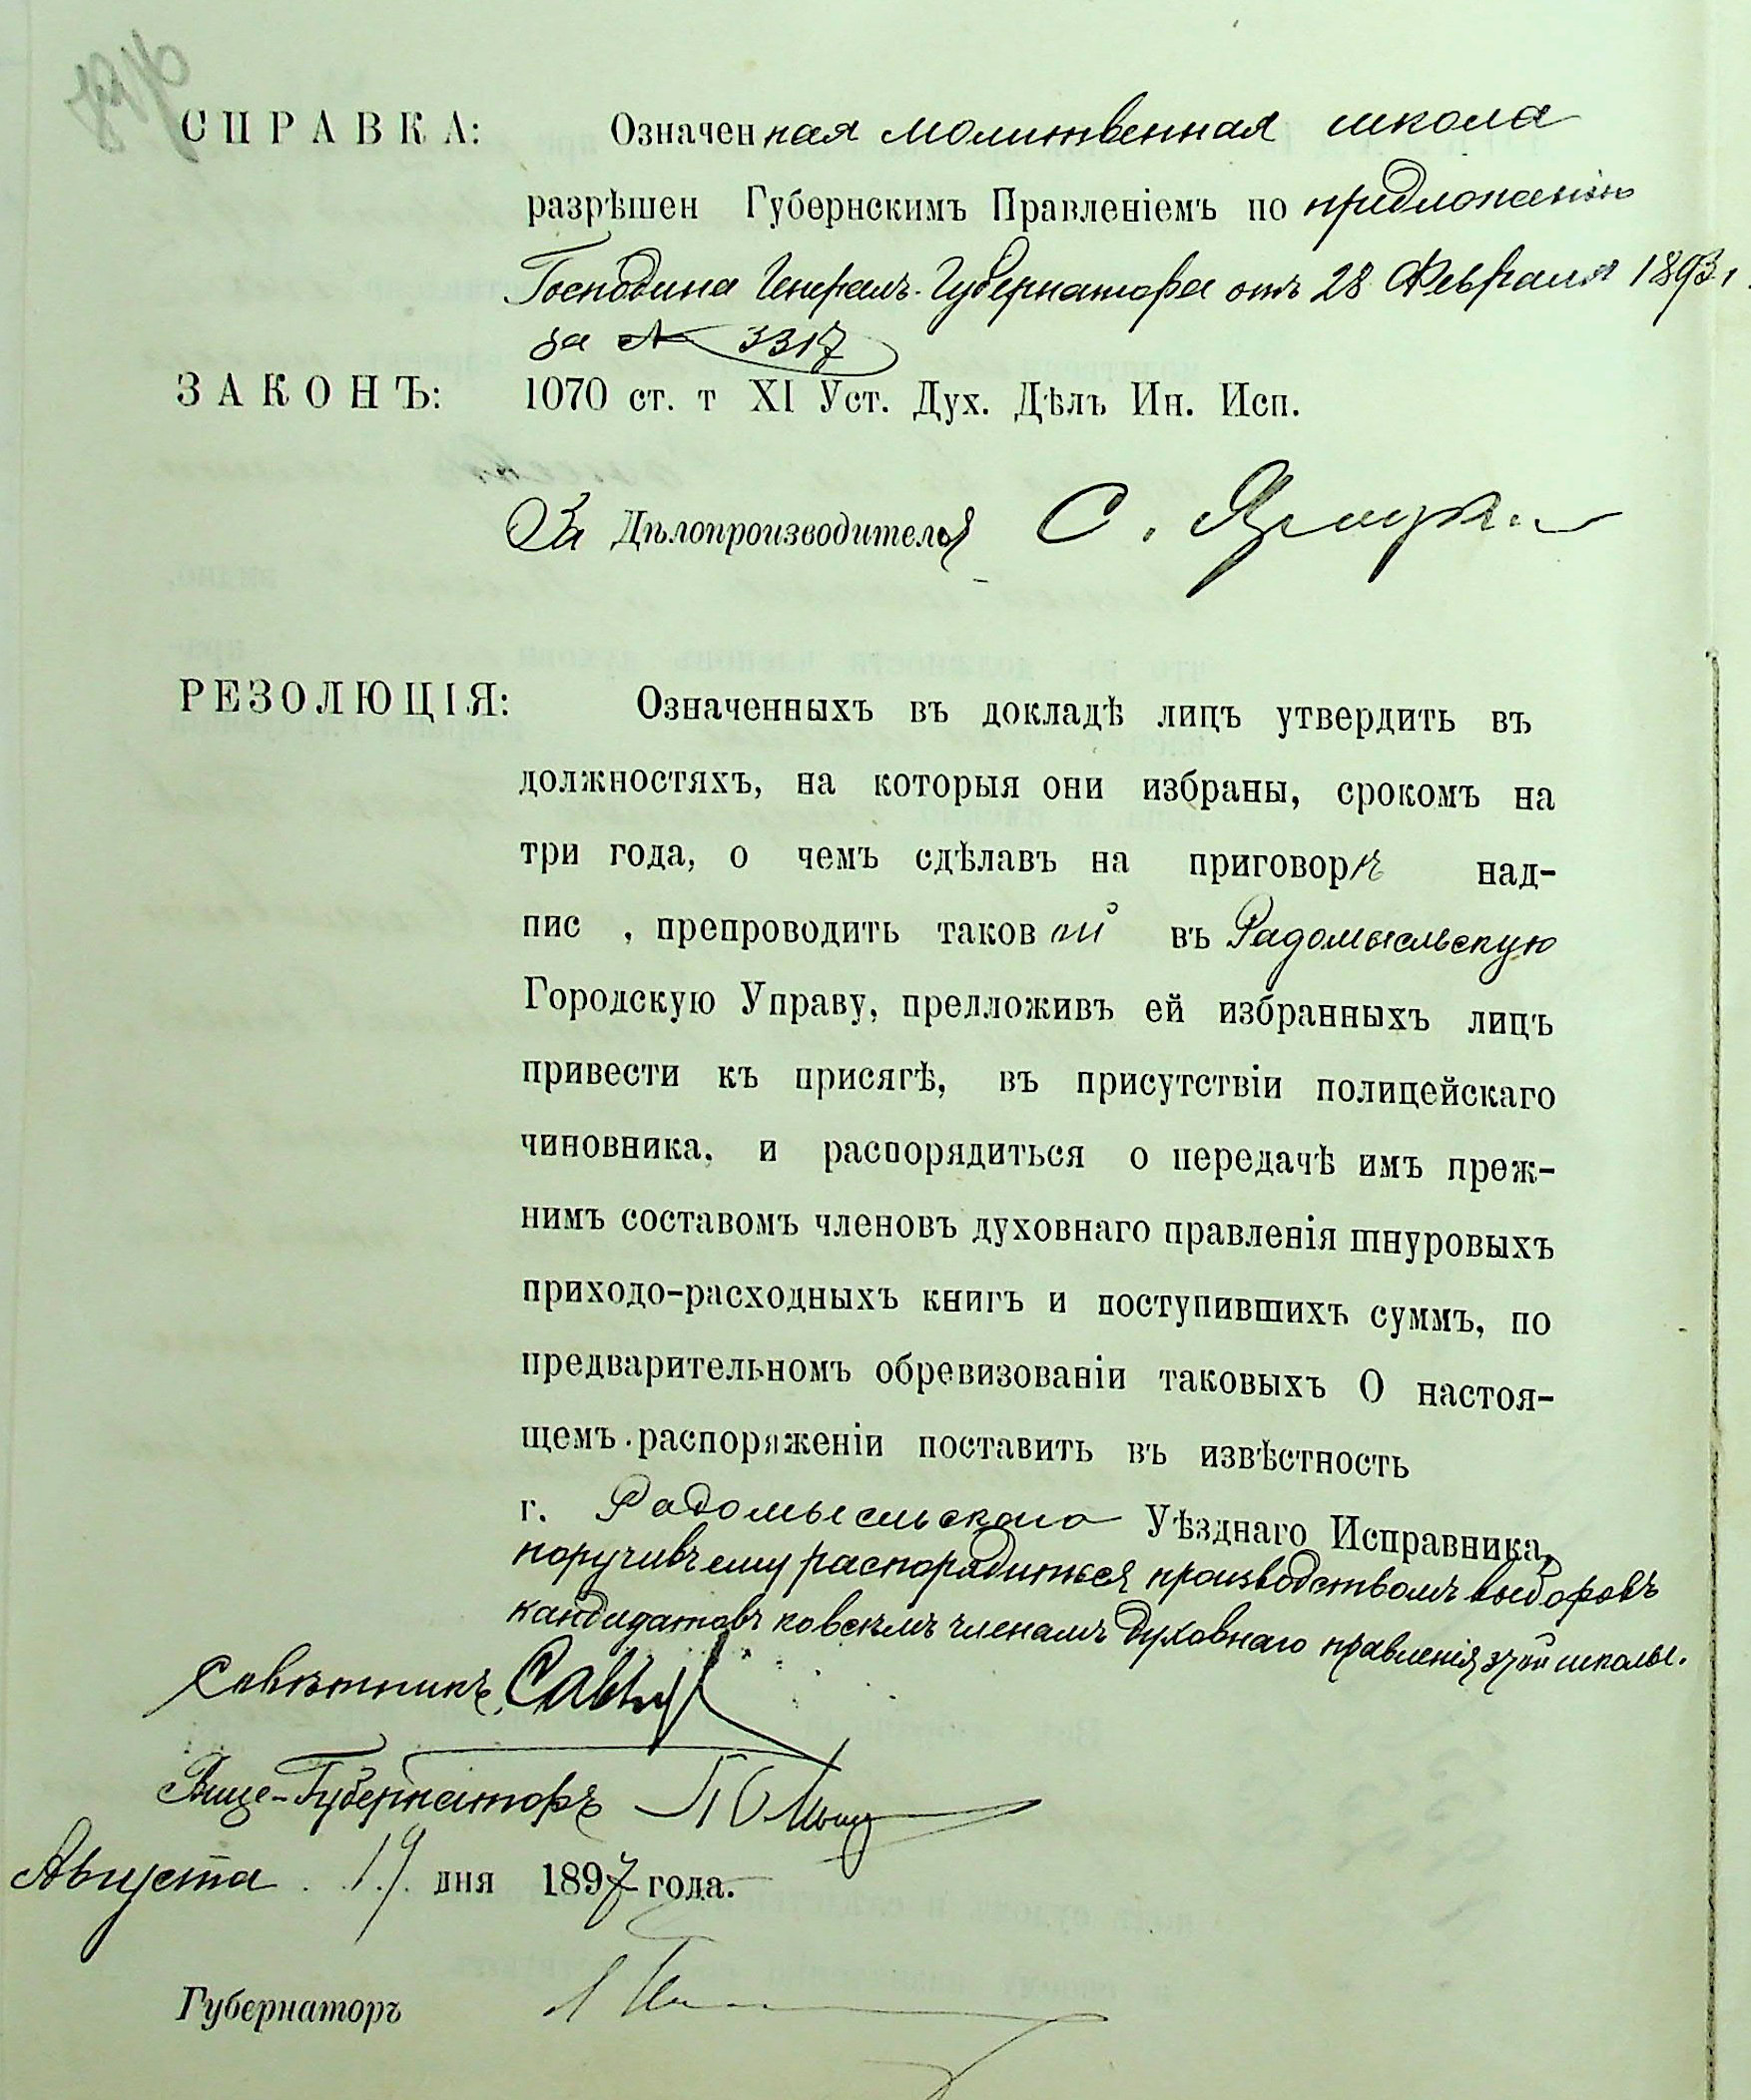 СПРАВКА: Означенная молитвенная школа
разрѣшен Губернскимъ Правленіемъ по предложенію
Господина Генералъ-Губернатора отъ 28 Февраля 1893 г.
за № 3317
ЗАКОНЪ: 1070 ст. т XI Уст. Дух. Дѣлъ Ин. Исп.
За Дѣлопроизводителя С.
РЕЗОЛЮЦІЯ: Означенныхъ въ докладѣ лицъ утвердить въ
должностяхъ, на которыя они избраны, срокомъ на
три года, о чемъ сдѣлавъ на приговорѣ над-
пис , препроводить таковой въ Радомысльскую
Городскую Управу, предложивъ ей избранныхъ лицъ
привести къ присягѣ, въ присутствіи полицейскаго
чиновника, и распорядиться о передачѣ имъ преж-
нимъ составомъ членовъ духовнаго правленія шнуровыхъ
приходо-расходныхъ книгъ и поступившихъ суммъ, по
предварительномъ обревизованіи таковыхъ О настоя-
щемъ распоряженіи поставить въ извѣстность
г. Радомысльскаго Уѣзднаго Исправника,
поручивъ ему распорядиться производствомъ выборовъ
кандидатовъ ко всѣмъ членамъ духовнаго правленія этой школы.
Совѣтникъ
Вице-Губернаторъ
Августа 19 дня 1897 года.
Губернаторъ